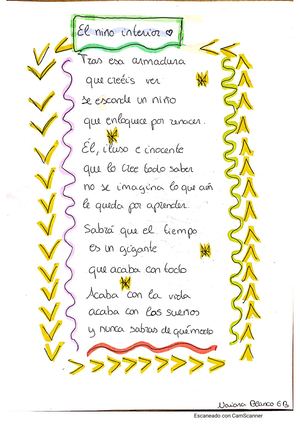 El niño interior
Tras esa armadura
que creéis ver
se esconde un niño
que enloquece por renacer.
Él, iluso e inocente
que lo cree todo saber
no se imagina lo que aún
le queda por aprender.
Sabrá que el tiempo
es un gigante
que acaba con todo
Acaba con la vida
acaba con los sueños
y nunca sabrás de qué modo
Mariana Blanco 6B
Escaneado con CamScanner